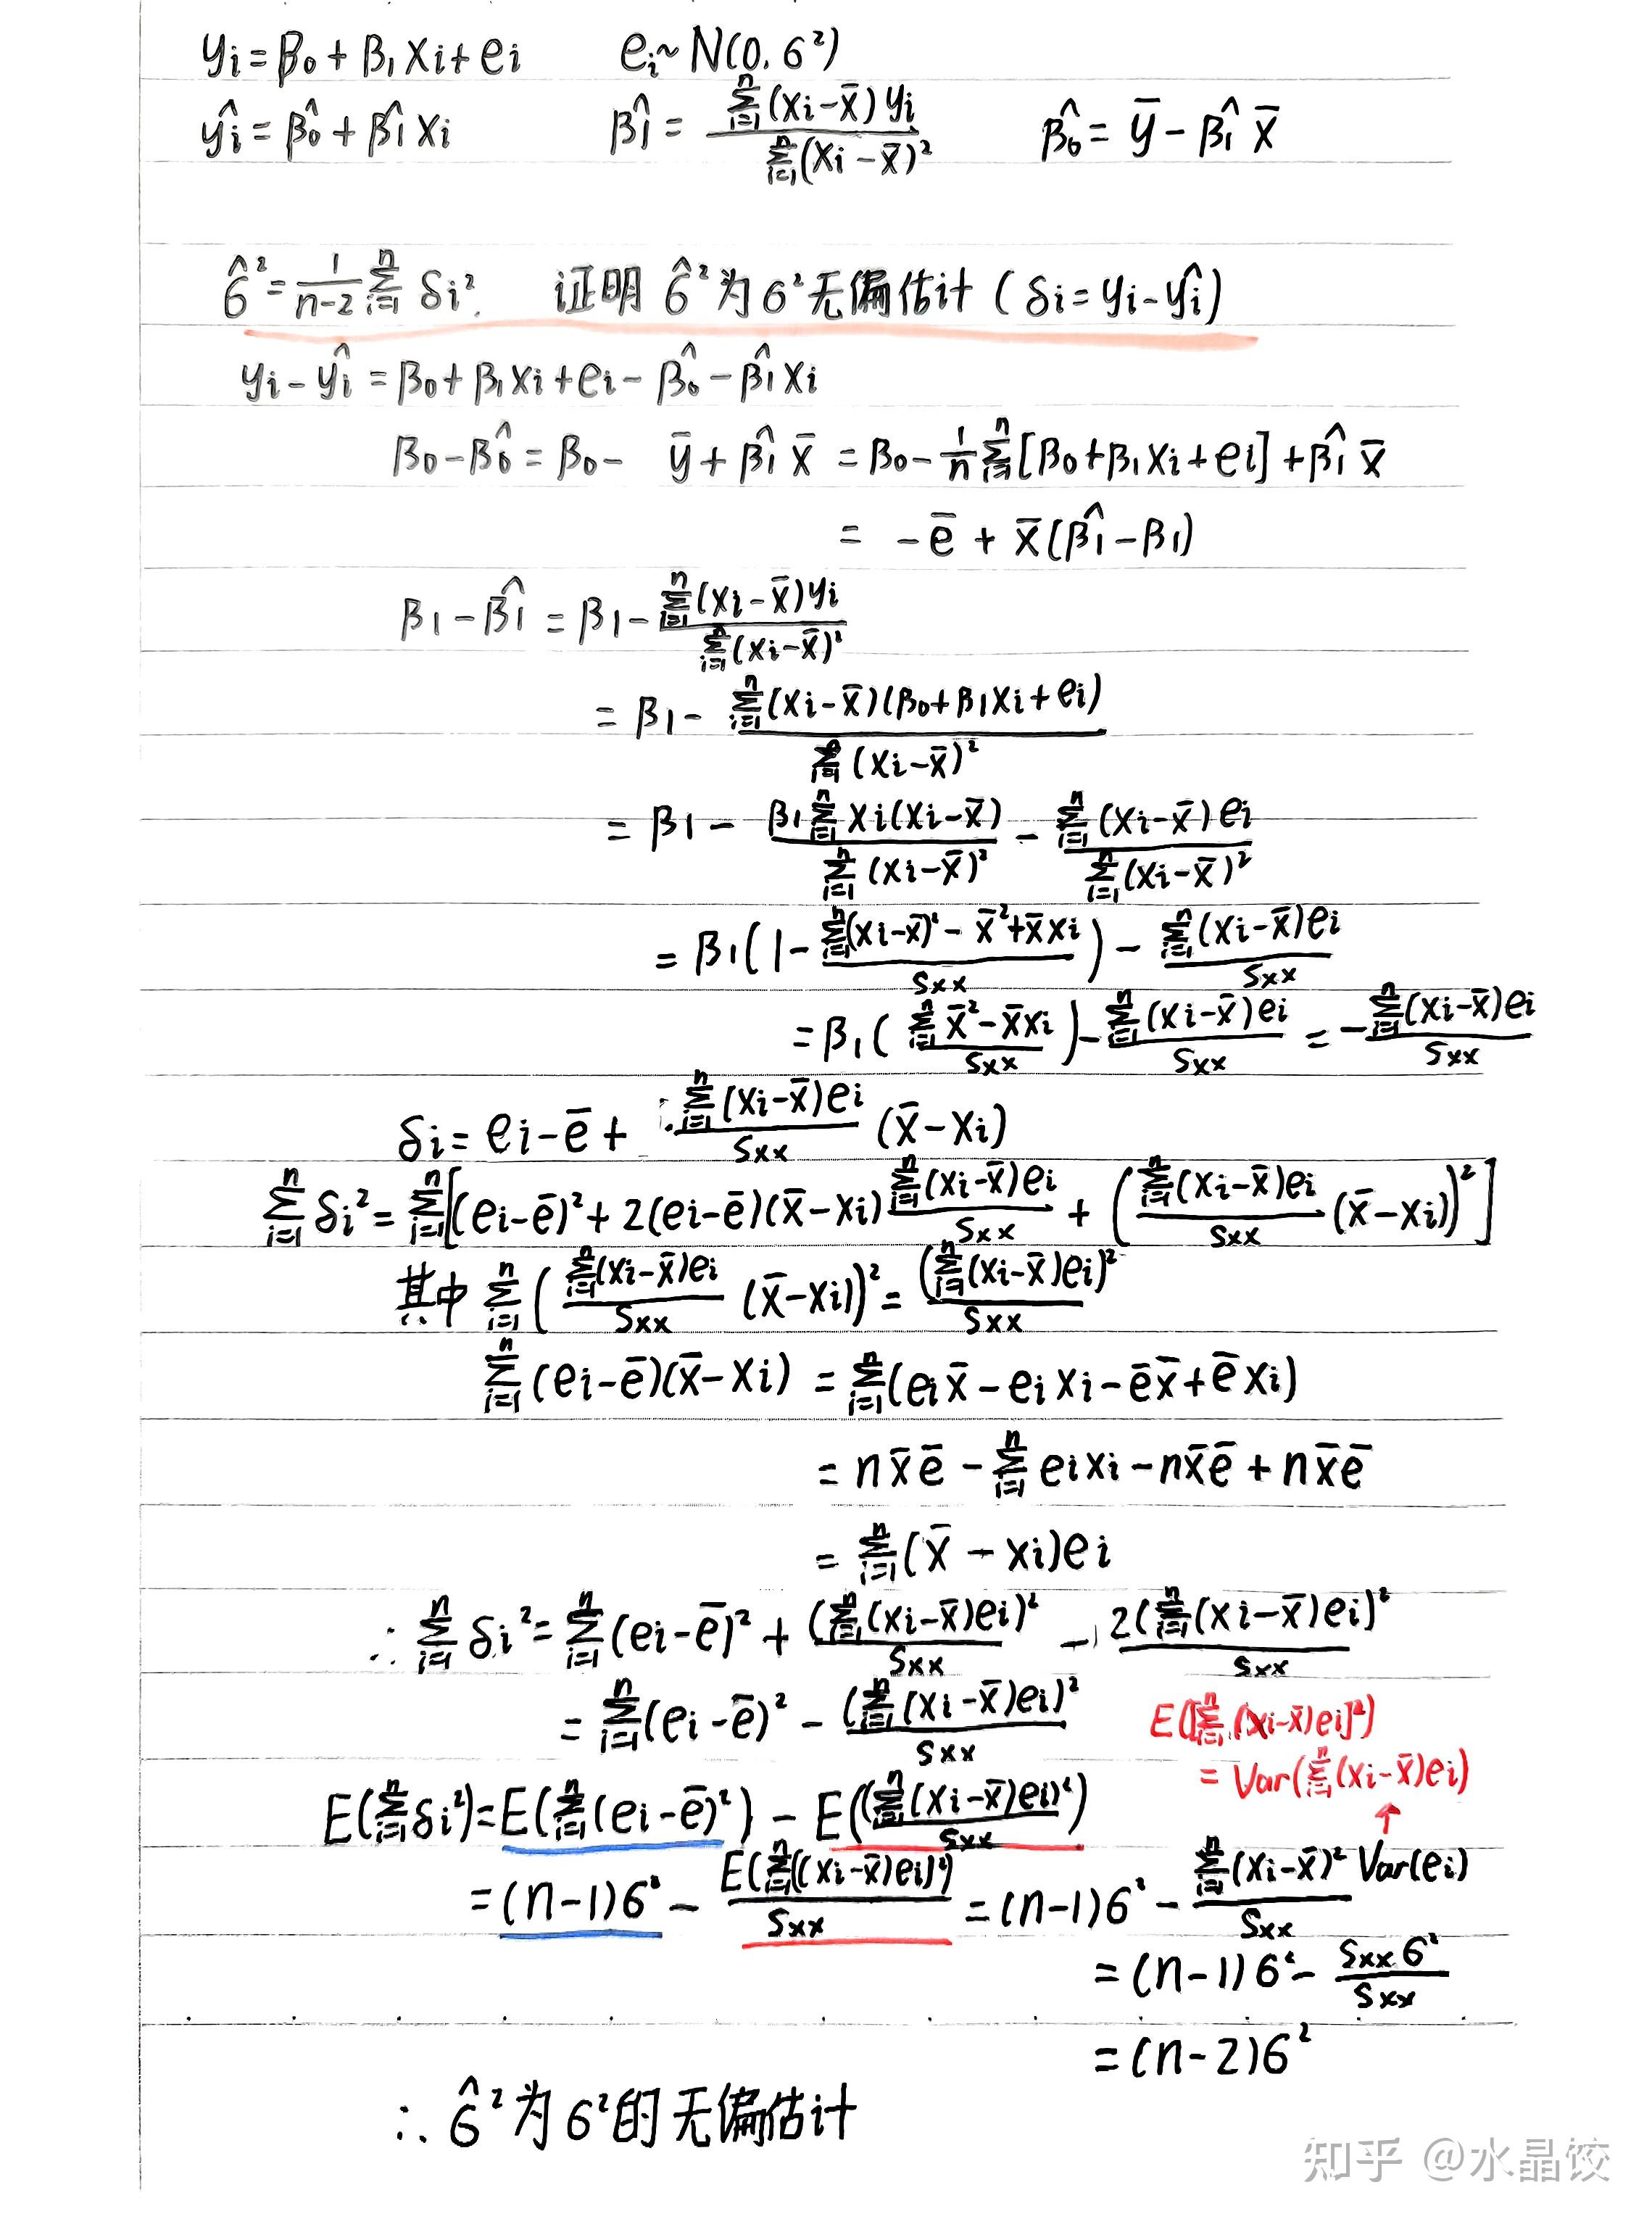 yᵢ = β₀ + β₁xᵢ + eᵢ    eᵢ ~ N(0, б²)
ŷᵢ = β̂₀ + β̂₁xᵢ    β̂₁ = ∑ᵢ₌₁ⁿ(xᵢ-x̄)yᵢ / ∑ᵢ₌₁ⁿ(xᵢ-x̄)²    β̂₀ = ȳ - β̂₁x̄
б̂² = 1/(n-2) ∑ᵢ₌₁ⁿ δᵢ².    证明 б̂² 为 б² 无偏估计 (δᵢ = yᵢ-ŷᵢ)
yᵢ - ŷᵢ = β₀ + β₁xᵢ + eᵢ - β̂₀ - β̂₁xᵢ
β₀ - β̂₀ = β₀ - ȳ + β̂₁x̄ = β₀ - 1/n ∑ᵢ₌₁ⁿ[β₀+β₁xᵢ+eᵢ] + β̂₁x̄
= -ē + x̄(β̂₁-β₁)
β₁ - β̂₁ = β₁ - ∑ᵢ₌₁ⁿ(xᵢ-x̄)yᵢ / ∑ᵢ₌₁ⁿ(xᵢ-x̄)²
= β₁ - ∑ᵢ₌₁ⁿ(xᵢ-x̄)(β₀+β₁xᵢ+eᵢ) / ∑ᵢ₌₁ⁿ(xᵢ-x̄)²
= β₁ - β₁∑ᵢ₌₁ⁿxᵢ(xᵢ-x̄) / ∑ᵢ₌₁ⁿ(xᵢ-x̄)² - ∑ᵢ₌₁ⁿ(xᵢ-x̄)eᵢ / ∑ᵢ₌₁ⁿ(xᵢ-x̄)²
= β₁(1 - ∑ᵢ₌₁ⁿ(xᵢ-x̄)² - x̄² + x̄xᵢ / Sxx) - ∑ᵢ₌₁ⁿ(xᵢ-x̄)eᵢ / Sxx
= β₁(∑ᵢ₌₁ⁿ x̄²-x̄xᵢ / Sxx) - ∑ᵢ₌₁ⁿ(xᵢ-x̄)eᵢ / Sxx = -∑ᵢ₌₁ⁿ(xᵢ-x̄)eᵢ / Sxx
δᵢ = eᵢ - ē + ∑ᵢ₌₁ⁿ(xᵢ-x̄)eᵢ / Sxx (x̄-xᵢ)
∑ᵢ₌₁ⁿ δᵢ² = ∑ᵢ₌₁ⁿ[(eᵢ-ē)² + 2(eᵢ-ē)(x̄-xᵢ) ∑ᵢ₌₁ⁿ(xᵢ-x̄)eᵢ / Sxx + (∑ᵢ₌₁ⁿ(xᵢ-x̄)eᵢ / Sxx (x̄-xᵢ))²]
其中 ∑ᵢ₌₁ⁿ(∑ᵢ₌₁ⁿ(xᵢ-x̄)eᵢ / Sxx (x̄-xᵢ))² = (∑ᵢ₌₁ⁿ(xᵢ-x̄)eᵢ)² / Sxx
∑ᵢ₌₁ⁿ(eᵢ-ē)(x̄-xᵢ) = ∑ᵢ₌₁ⁿ(eᵢx̄ - eᵢxᵢ - ēx̄ + ēxᵢ)
= nx̄ē - ∑ᵢ₌₁ⁿ eᵢxᵢ - nx̄ē + nx̄ē
= ∑ᵢ₌₁ⁿ(x̄ - xᵢ)eᵢ
∴ ∑ᵢ₌₁ⁿ δᵢ² = ∑ᵢ₌₁ⁿ(eᵢ-ē)² + (∑ᵢ₌₁ⁿ(xᵢ-x̄)eᵢ)² / Sxx - 2(∑ᵢ₌₁ⁿ(xᵢ-x̄)eᵢ)² / Sxx
= ∑ᵢ₌₁ⁿ(eᵢ-ē)² - (∑ᵢ₌₁ⁿ(xᵢ-x̄)eᵢ)² / Sxx
E([∑ᵢ₌₁ⁿ(xᵢ-x̄)eᵢ]²)
= Var(∑ᵢ₌₁ⁿ(xᵢ-x̄)eᵢ)
↑
E(∑ᵢ₌₁ⁿδᵢ²) = E(∑ᵢ₌₁ⁿ(eᵢ-ē)²) - E((∑ᵢ₌₁ⁿ(xᵢ-x̄)eᵢ)² / Sxx)
= (n-1)б² - E(∑ᵢ₌₁ⁿ((xᵢ-x̄)eᵢ)²) / Sxx = (n-1)б² - ∑ᵢ₌₁ⁿ(xᵢ-x̄)² Var(eᵢ) / Sxx
= (n-1)б² - Sxx б² / Sxx
= (n-2)б²
∴ б̂² 为 б² 的无偏估计
知乎 @水晶饺